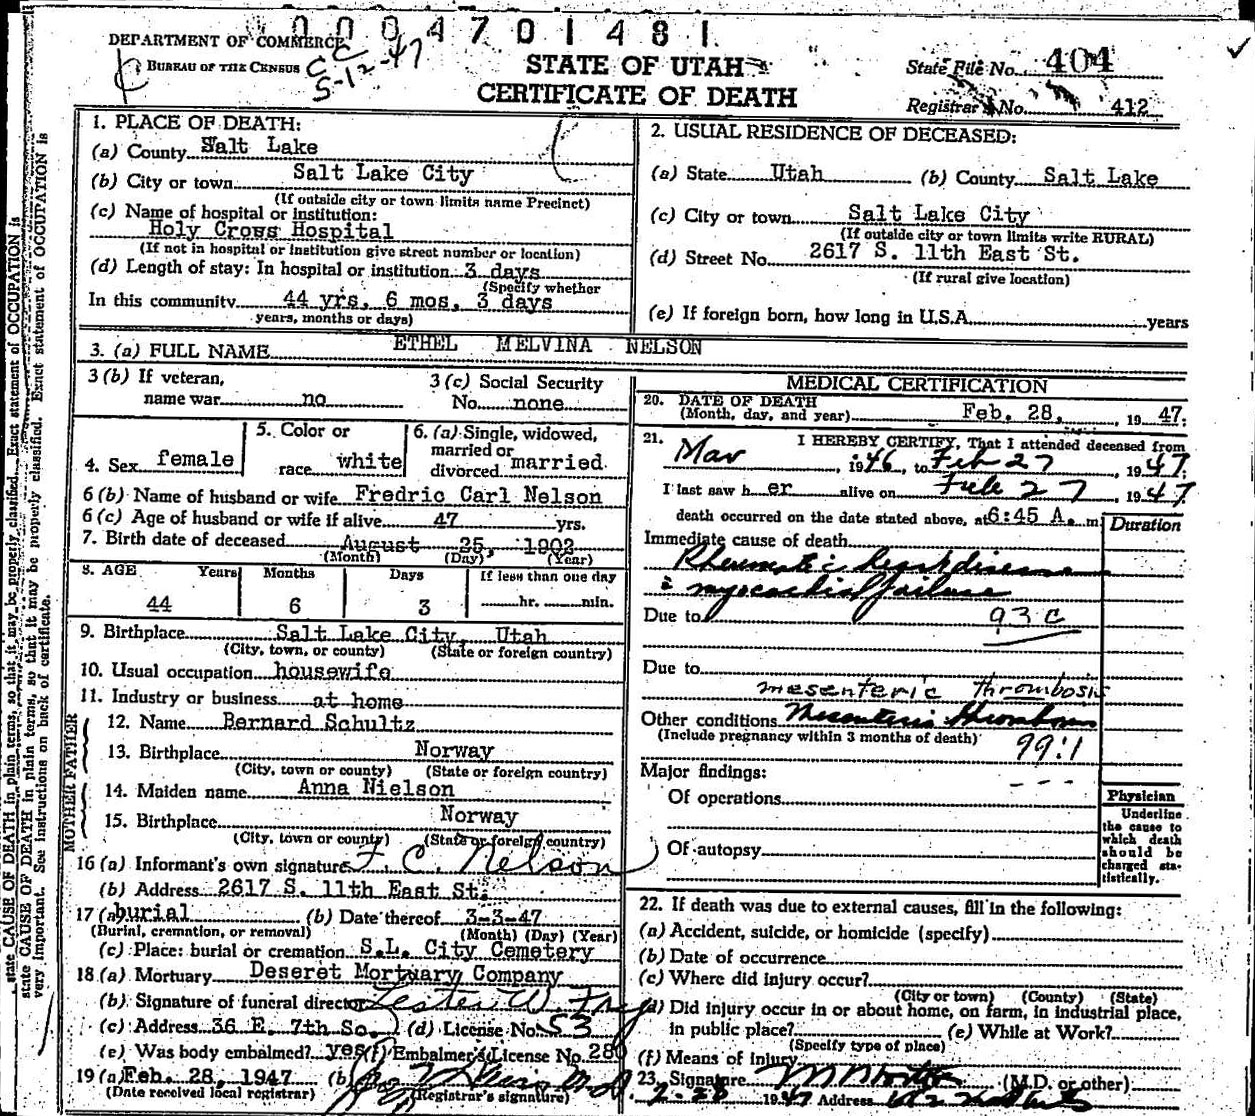 0004701481
DEPARTMENT OF COMMERCE
BUREAU OF THE CENSUS
CC
5-12-47
STATE OF UTAH
CERTIFICATE OF DEATH
State File No. 404
Registrar's No. 412
1. PLACE OF DEATH:
(a) County Salt Lake
(b) City or town Salt Lake City
(If outside city or town limits name Precinct)
(c) Name of hospital or institution:
Holy Cross Hospital
(If not in hospital or institution give street number or location)
(d) Length of stay: In hospital or institution 3 days
(Specify whether
In this community 44 yrs, 6 mos, 3 days
years, months or days)
2. USUAL RESIDENCE OF DECEASED:
(a) State Utah (b) County Salt Lake
(c) City or town Salt Lake City
(If outside city or town limits write RURAL)
(d) Street No. 2617 S. 11th East St.
(If rural give location)
(e) If foreign born, how long in U.S.A. years
3. (a) FULL NAME ETHEL MELVINA NELSON
3 (b) If veteran,
name war no
3 (c) Social Security
No. none
4. Sex female
5. Color or
race white
6. (a) Single, widowed,
married or
divorced married
6 (b) Name of husband or wife Fredric Carl Nelson
6 (c) Age of husband or wife if alive 47 yrs.
7. Birth date of deceased August 25, 1902
(Month) (Day) (Year)
8. AGE Years Months Days If less than one day
44 6 3 hr. min.
9. Birthplace Salt Lake City, Utah
(City, town, or county) (State or foreign country)
10. Usual occupation housewife
11. Industry or business at home
FATHER
12. Name Bernard Schultz
13. Birthplace Norway
(City, town or county) (State or foreign country)
MOTHER
14. Maiden name Anna Nielson
15. Birthplace Norway
(City, town or county) (State or foreign country)
16 (a) Informant's own signature F. C. Nelson
(b) Address 2617 S. 11th East St.
17 (a) burial (b) Date thereof 3-3-47
(Burial, cremation, or removal) (Month) (Day) (Year)
(c) Place: burial or cremation S.L. City Cemetery
18 (a) Mortuary Deseret Mortuary Company
(b) Signature of funeral director Lester W
(c) Address 36 E. 7th So. (d) License No. 53
(e) Was body embalmed? yes (f) Embalmer's License No. 280
19 (a) Feb. 28, 1947 (b)
(Date received local registrar) (Registrar's signature)
MEDICAL CERTIFICATION
20. DATE OF DEATH
(Month, day, and year) Feb. 28, 19 47.
21. I HEREBY CERTIFY, That I attended deceased from
Mar, 1946, to Feb 27, 1947.
I last saw h er alive on Feb 27, 1947
death occurred on the date stated above, at 6:45 A. m.
Duration
Immediate cause of death
Rheumatic heart disease
c myocardial failure
Due to 93c
Due to
mesenteric thrombosis
Other conditions Mesenteric thrombosis
(Include pregnancy within 3 months of death)
99:1
Major findings:
Of operations
Of autopsy
Physician
Underline
the cause to
which death
should be
charged sta-
tistically.
22. If death was due to external causes, fill in the following:
(a) Accident, suicide, or homicide (specify)
(b) Date of occurrence
(c) Where did injury occur?
(City or town) (County) (State)
(d) Did injury occur in or about home, on farm, in industrial place,
in public place? (e) While at Work?
(Specify type of place)
(f) Means of injury
23. Signature (M.D. or other)
2-28 1947 Address
state CAUSE OF DEATH in plain terms, so that it may be properly classified. Exact statement of OCCUPATION is
very important. See instructions on back of certificate.